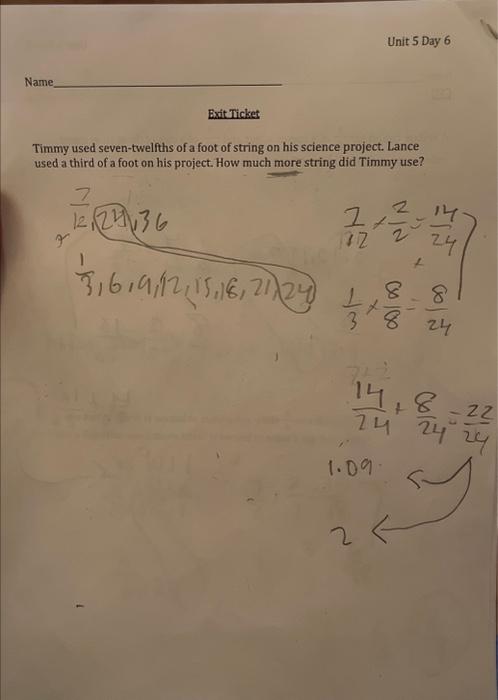 Unit 5 Day 6
Name
Exit Ticket
Timmy used seven-twelfths of a foot of string on his science project. Lance
used a third of a foot on his project. How much more string did Timmy use?
7/12, 24, 36
1/3, 6, 9, 12, 15, 18, 21, 24
7/12 × 2/2 = 14/24
+
1/3 × 8/8 = 8/24
14/24 + 8/24 = 22/24
1.09
2